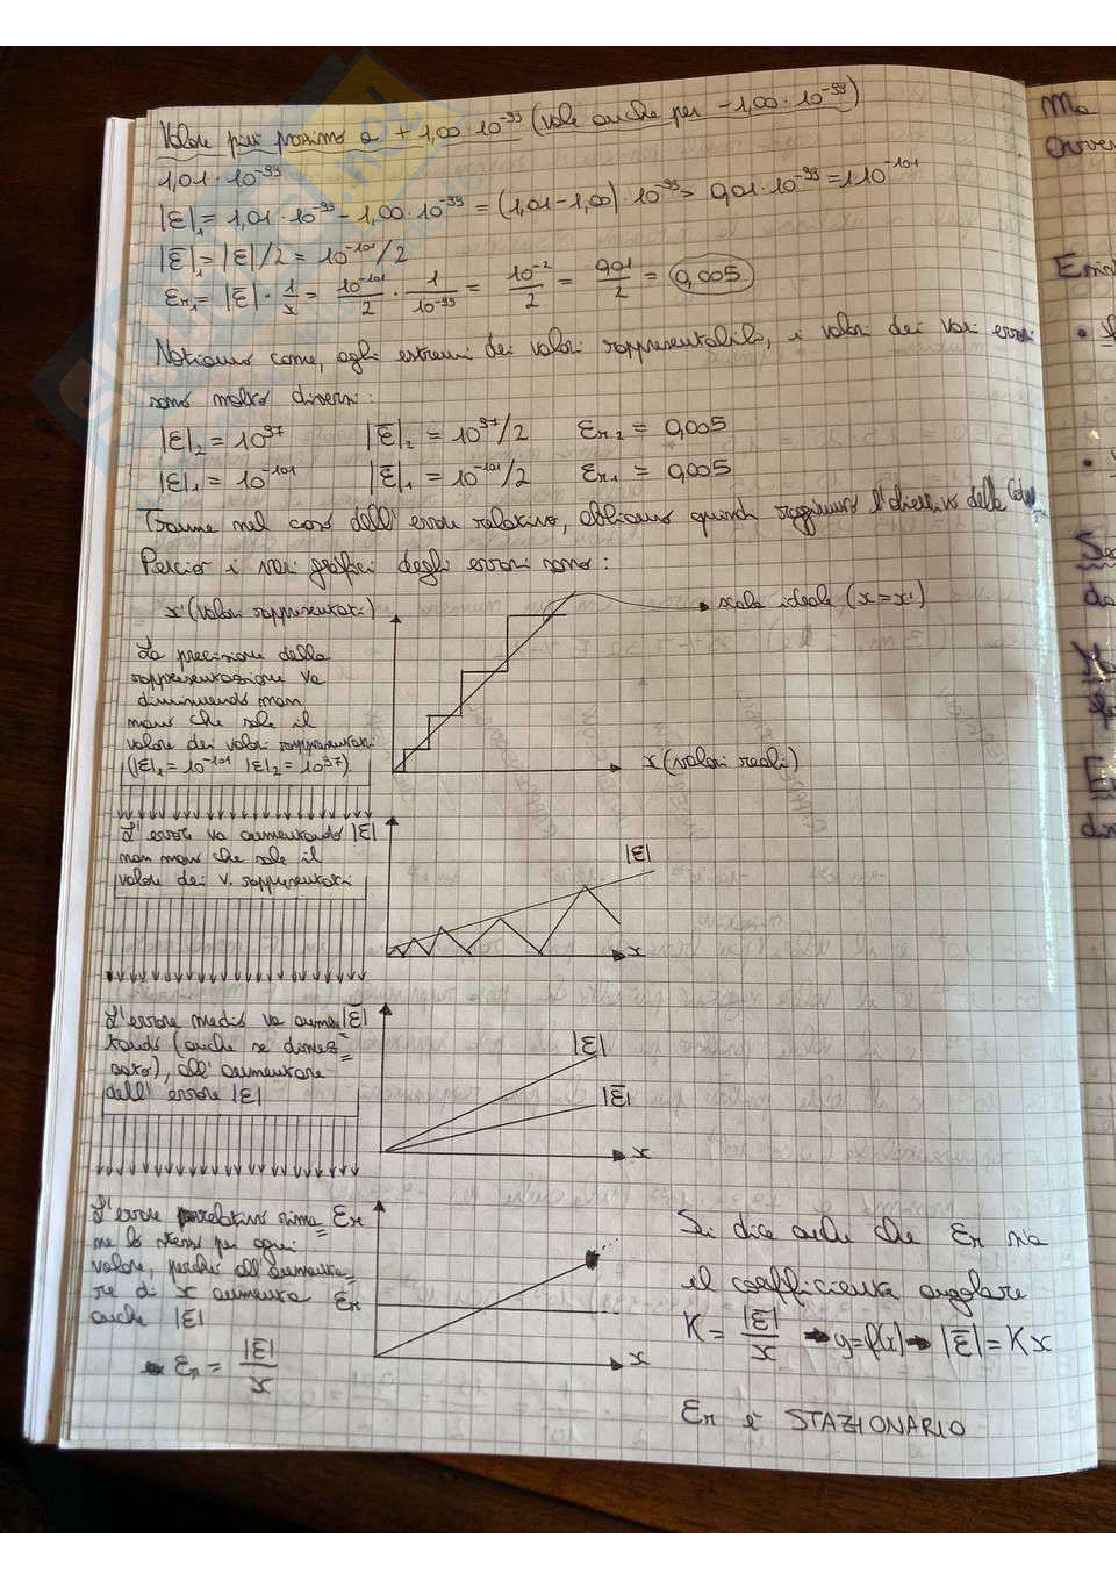 Valore più prossimo a + 1,00 · 10⁻⁹⁹ (vale anche per − 1,00 · 10⁻⁹⁹)
1,01 · 10⁻⁹⁹
|ε|₁ = 1,01 · 10⁻⁹⁹ − 1,00 · 10⁻⁹⁹ = (1,01 − 1,00) · 10⁻⁹⁹ = 0,01 · 10⁻⁹⁹ = 1 10⁻¹⁰¹
|ε̅|₁ = |ε|/2 = 10⁻¹⁰¹/2
εr₁ = |ε̅| · 1/x = 10⁻¹⁰¹/2 · 1/10⁻⁹⁹ = 10⁻²/2 = 0,01/2 = 0,005
Notiamo come, agli estremi dei valori rappresentabili, i valori dei vari errori
sono molto diversi:
|ε|₂ = 10⁹⁷ |ε̅|₂ = 10⁹⁷/2 εr₂ = 0,005
|ε|₁ = 10⁻¹⁰¹ |ε̅|₁ = 10⁻¹⁰¹/2 εr₁ = 0,005
Tranne nel caso dell'errore relativo, abbiamo quindi raggiunto l'obiettivo della
Perciò i vari grafici degli errori sono:
x' (valori rappresentati)
scala ideale (x=x')
La precisione della
rappresentazione va
diminuendo man
mano che sale il
valore dei valori rappresentati
(|ε|₁ = 10⁻¹⁰¹ |ε|₂ = 10⁹⁷)
x (valori reali)
L'errore va aumentando
man mano che sale il
valore dei v. rappresentati
|ε|
|ε|
x
L'errore medio va aumen=
tando (anche se dimez=
zato), all'aumentare
dell'errore |ε|
|ε̅|
|ε|
|ε̅|
x
L'errore relativo rima=
ne lo stesso per ogni
valore, perché all'aumenta=
re di x aumenta
anche |ε|
εr = |ε̅|/x
εr
εr
x
Si dice anche che εr sia
il coefficiente angolare
K = |ε̅|/x → y=f(x) → |ε̅| = Kx
εr è STAZIONARIO